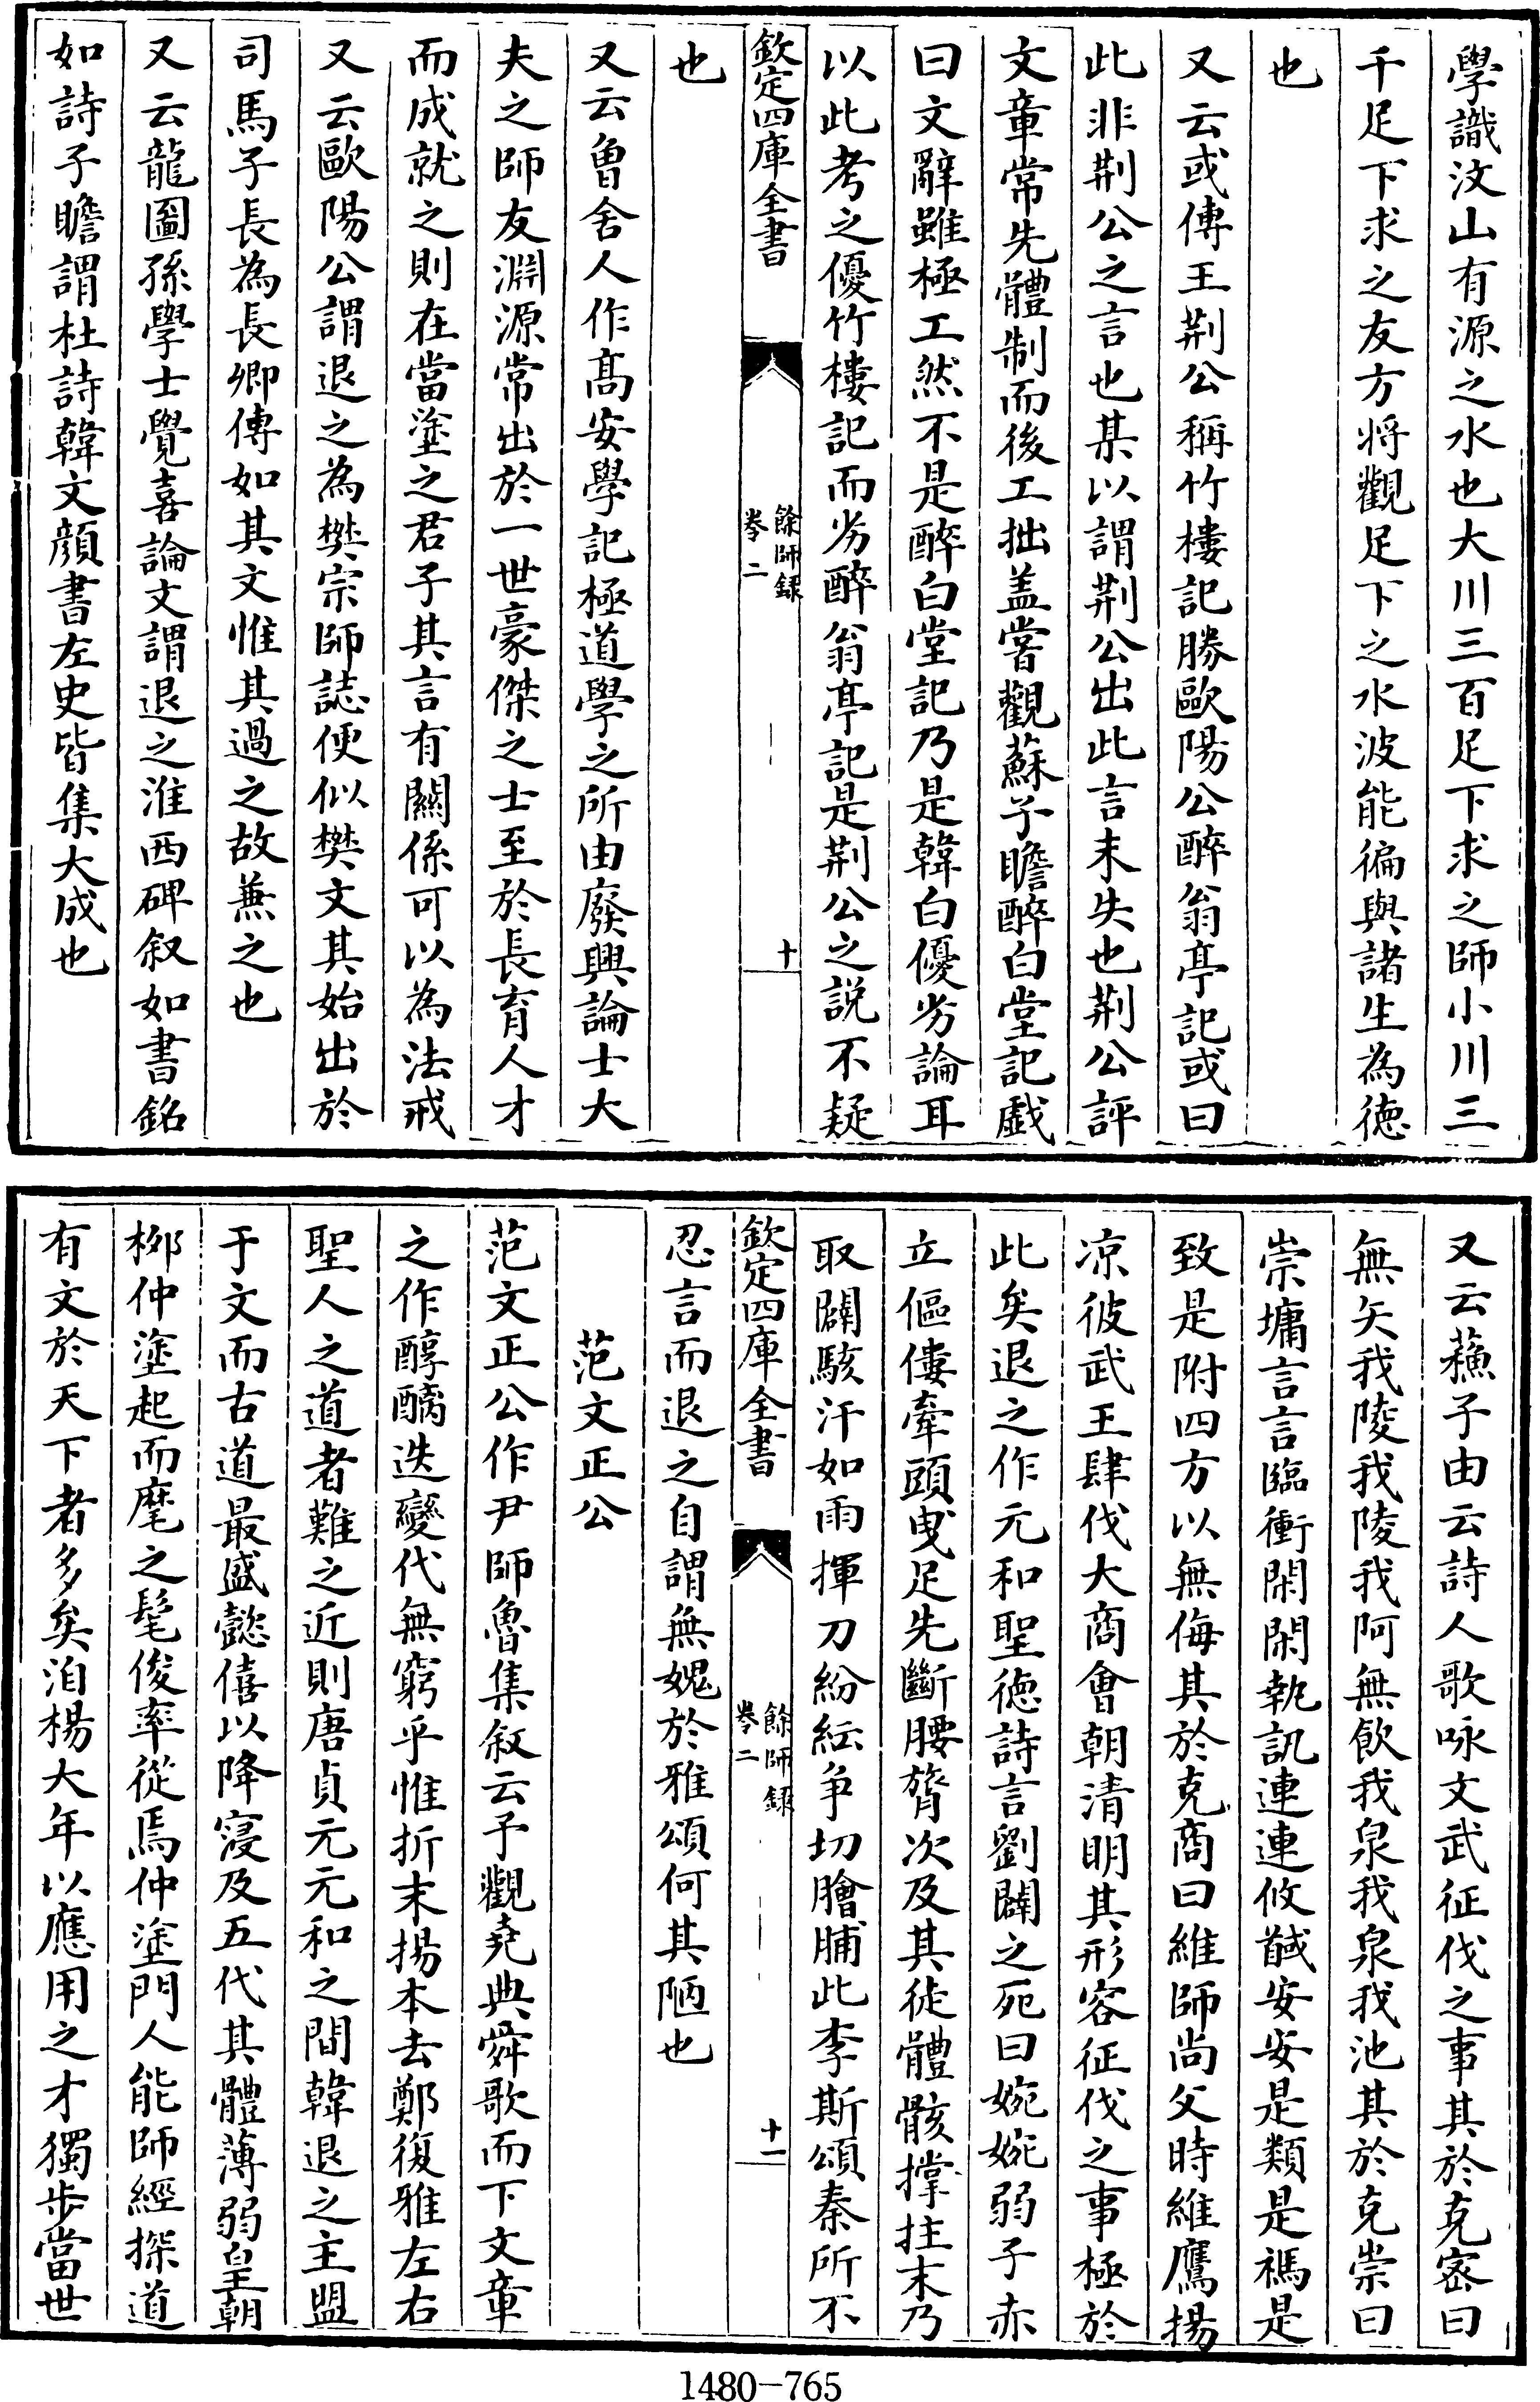 學識汶山有源之水也大川三百足下求之師小川三
千足下求之友方將觀足下之水波能徧與諸生為德
也
又云或傳王荆公稱竹樓記勝歐陽公醉翁亭記或曰
此非荆公之言也某以謂荆公出此言未失也荆公評
文章常先體制而後工拙盖嘗觀蘇子瞻醉白堂記戲
曰文辭雖極工然不是醉白堂記乃是韓白優劣論耳
以此考之優竹樓記而劣醉翁亭記是荆公之說不疑
欽定四庫全書
餘師録
卷二
十
也
又云曾舍人作髙安學記極道學之所由廢興論士大
夫之師友淵源常出於一世豪傑之士至於長育人才
而成就之則在當塗之君子其言有闗係可以為法戒
又云歐陽公謂退之為樊宗師誌便似樊文其始出於
司馬子長為長卿傳如其文惟其過之故兼之也
又云龍圖孫學士覺喜論文謂退之淮西碑叙如書銘
如詩子瞻謂杜詩韓文顔書左史皆集大成也
又云蘓子由云詩人歌咏文武征伐之事其於克密曰
無矢我陵我陵我阿無飲我泉我泉我池其於克崇曰
崇墉言言臨衝閑閑執訊連連攸馘安安是類是禡是
致是附四方以無侮其於克商曰維師尚父時維鷹揚
凉彼武王肆伐大商會朝清明其形容征伐之事極於
此矣退之作元和聖徳詩言劉闢之死曰婉婉弱子赤
立傴僂牽頭曳足先斷腰膂次及其徒體骸撐拄末乃
取闢駭汗如雨揮刀紛紜争切膾脯此李斯頌秦所不
欽定四庫全書
餘師録
卷二
十一
忍言而退之自謂無媿於雅頌何其陋也
范文正公
范文正公作尹師魯集叙云予觀堯典舜歌而下文章
之作醇醨迭變代無窮乎惟折末揚本去鄭復雅左右
聖人之道者難之近則唐貞元元和之間韓退之主盟
于文而古道最盛懿僖以降寖及五代其體薄弱皇朝
栁仲塗起而麾之髦俊率從焉仲塗門人能師經探道
有文於天下者多矣洎楊大年以應用之才獨步當世
1480-765